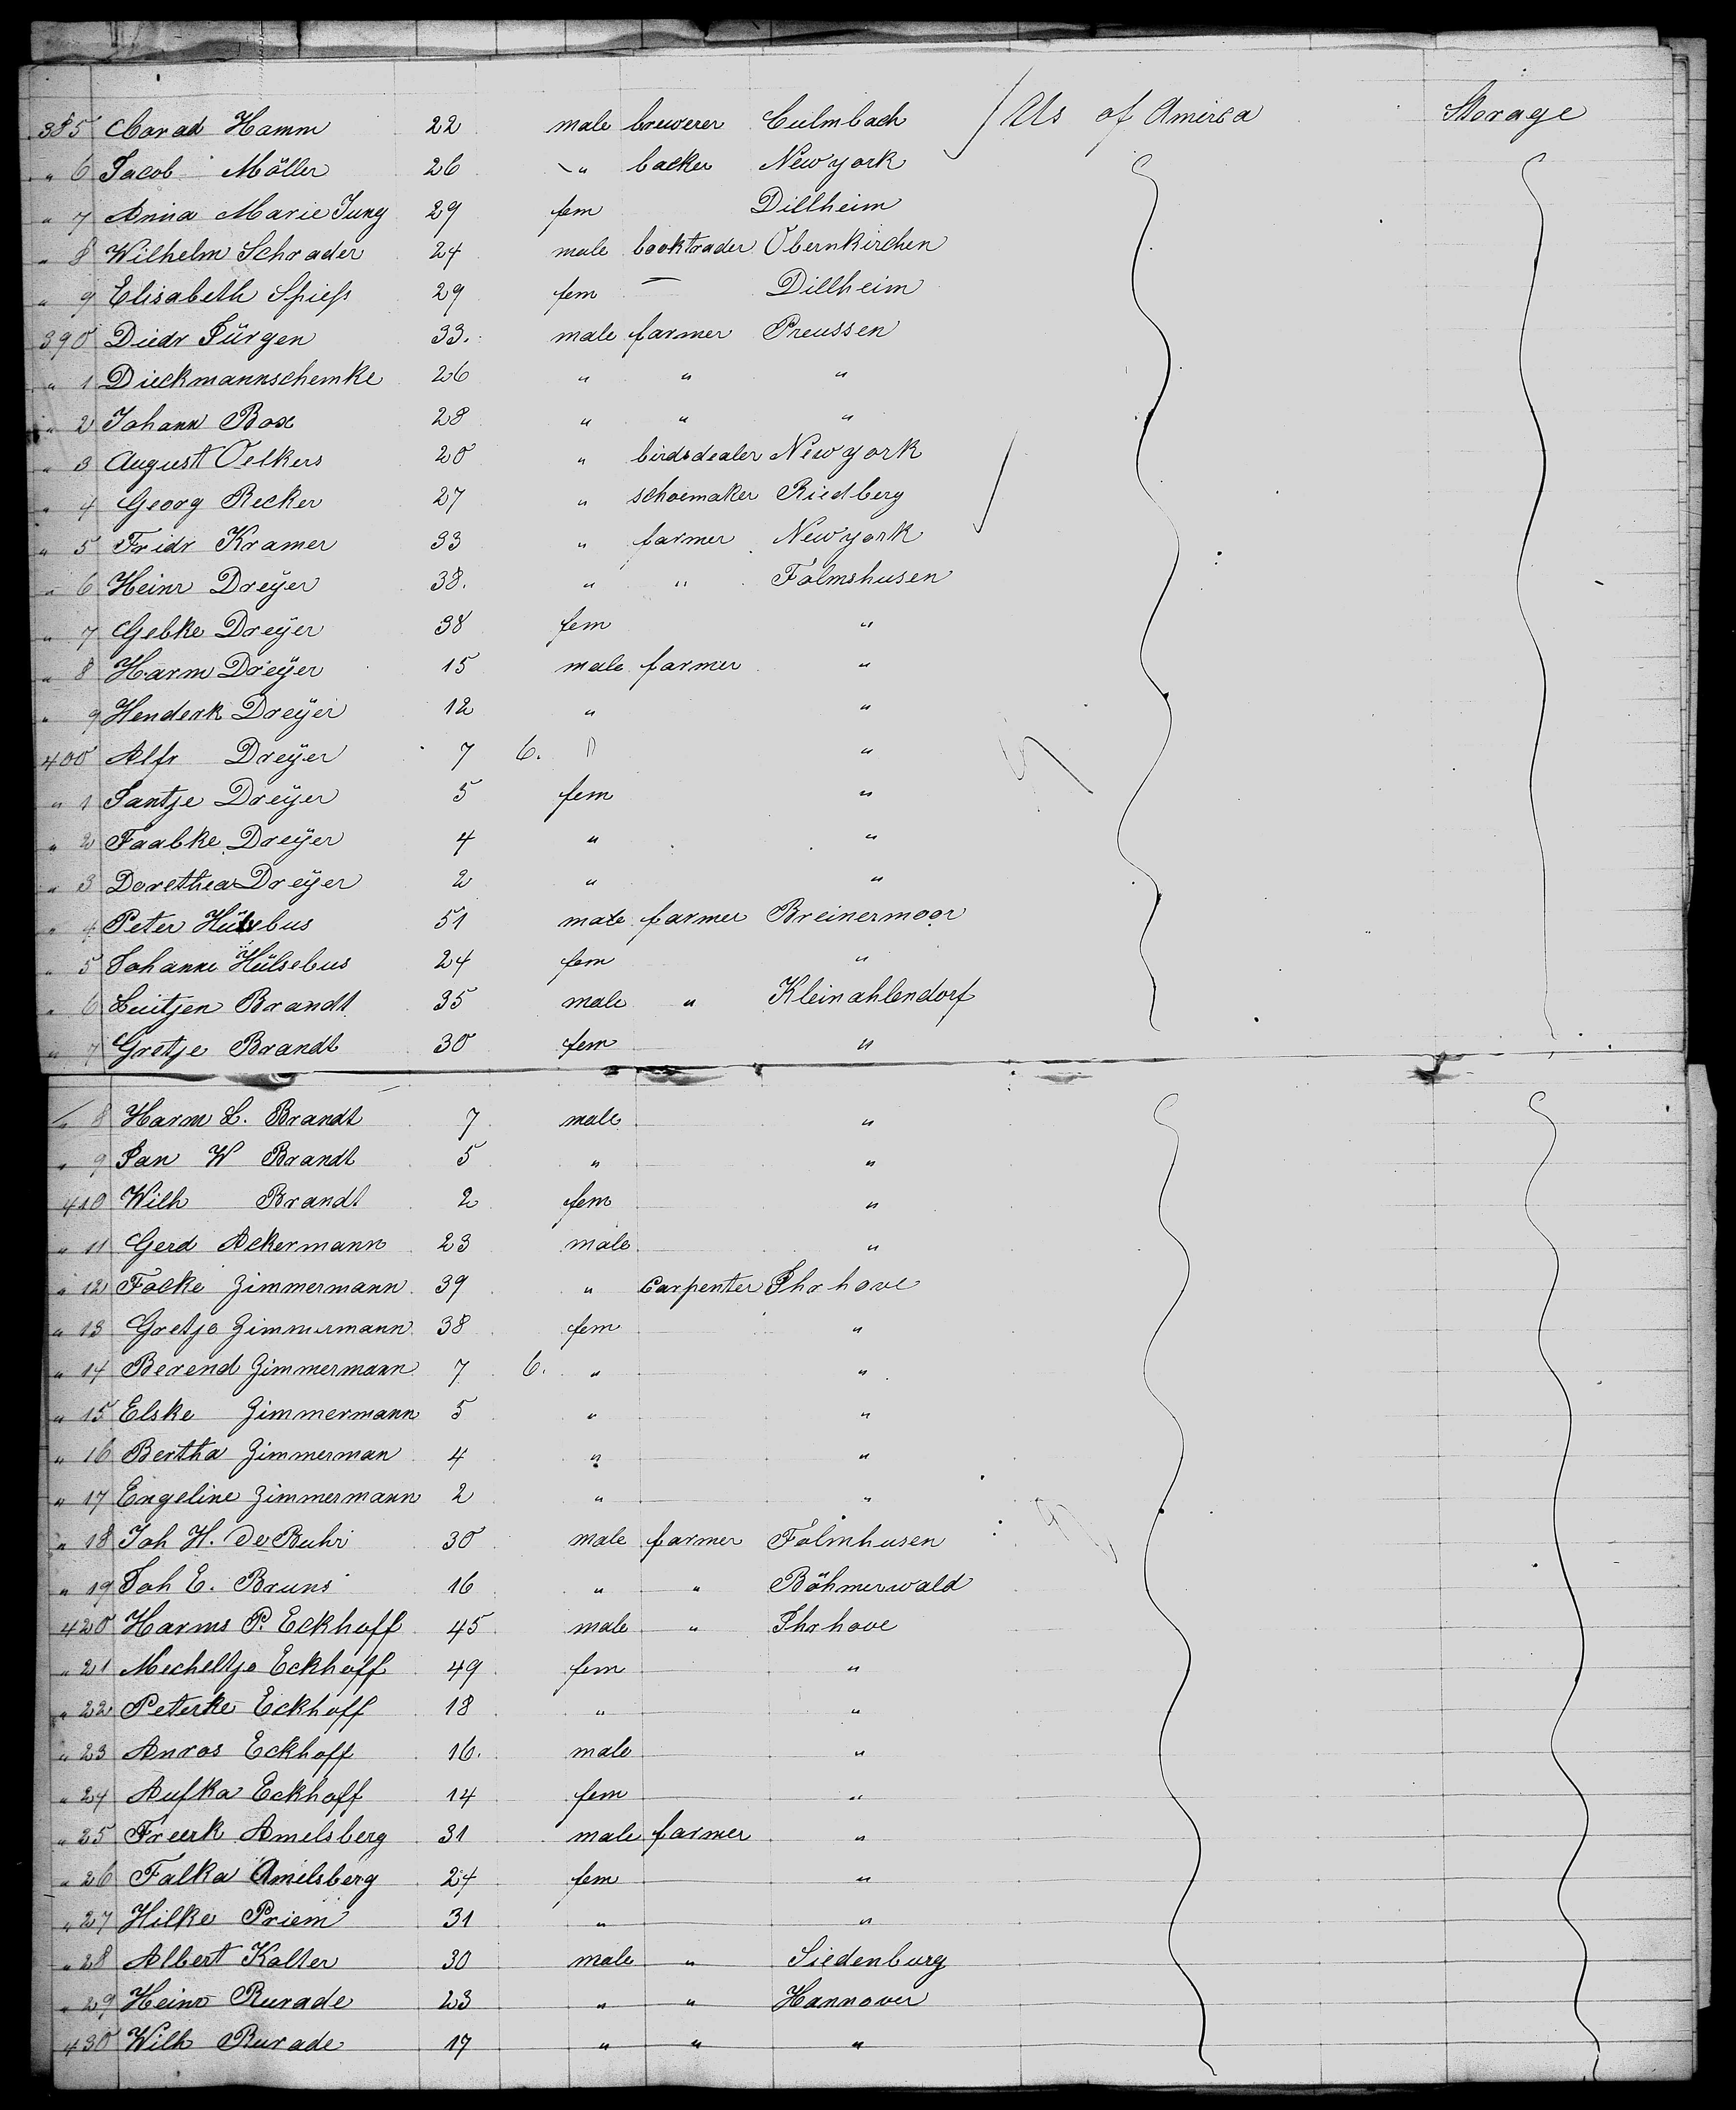 385 Conrad Hamm 22 male brewerer Culmbach Us of America Storage
" 6 Jacob Möller 26 " backer Newyork
" 7 Anna Marie Jung 29 fem Dillheim
" 8 Wilhelm Schrader 24 male booktrader Obernkirchen
" 9 Elisabeth Spiess 29 fem — Dillheim
390 Diedr Jürgen 33. male farmer Preussen
" 1 Dieckmannschemke 26 " " "
" 2 Johann Box 28 " " "
" 3 August Oelkers 20 " birdsdealer Newyork
" 4 Georg Recker 27 " schoemaker Riedberg
" 5 Fridr Kramer 33 " farmer Newyork
" 6 Heinr Dreÿer 38. " " Folmshusen
" 7 Gebke Dreÿer 38 fem "
" 8 Harm Dreÿer 15 male farmer "
" 9 Henderk Dreÿer 12 " "
400 Alfr Dreÿer 7 6. "
" 1 Jantje Dreÿer 5 fem "
" 2 Faabke Dreÿer 4 " "
" 3 Dorethea Dreÿer 2 " "
" 4 Peter 51 male farmer Breinermoor
" 5 Johanne Hülsebus 24 fem "
" 6 Luitjen Brandt 35 male " Kleinahlendorf
" 7 Gretje Brandt 30 fem "
" 8 Harm L. Brandt 7 male "
" 9 Jan W Brandt 5 " "
410 Wilh Brandt 2 fem "
" 11 Gerd Ackermann 23 male "
" 12 Focke Zimmermann 39 " Carpenter Ihrhove
" 13 Gretje Zimmermann 38 fem "
" 14 Berend Zimmermann 7 6. " "
" 15 Elske Zimmermann 5 " "
" 16 Bertha Zimmerman 4 " "
" 17 Engeline Zimmermann 2 " "
" 18 Joh H. De Buhr 30 male farmer Folmhusen
" 19 Joh E. Bruns 16 " " Böhmerwald
420 Harms P. Eckhoff 45 male " Ihrhove
" 21 Mecheltje Eckhoff 49 fem "
" 22 Peterke Eckhoff 18 " "
" 23 Eckhoff 16. male "
" 24 Aufka Eckhoff 14 fem "
" 25 Freerk Amelsberg 31 male farmer "
" 26 Falka Amelsberg 24 fem "
" 27 Hilke Priem 31 " "
" 28 Albert Kolter 30 male " Siedenburg
" 29 Heinr Rurade 23 " " Hannover
430 Wilh Rurade 17 " " "